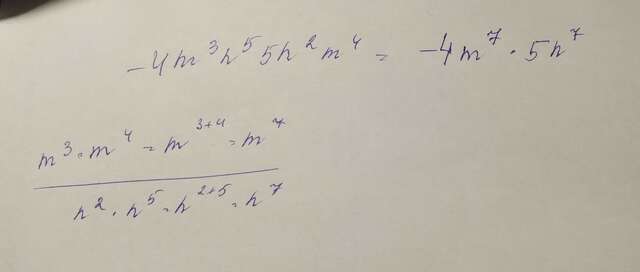 -4m³n⁵5n²m⁴ = -4m⁷ · 5n⁷
m³ · m⁴ = m³⁺⁴ = m⁷
n² · n⁵ = n²⁺⁵ = n⁷